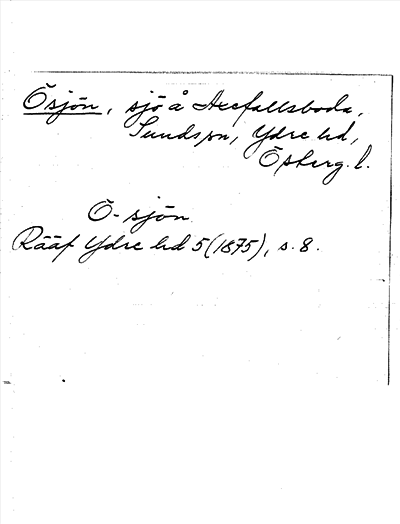 Ösjön, sjö å Axefallsboda,
Sunds sn, Ydre hd,
Östergl.
Ö-sjön
Rääf Ydre hd 5 (1875), s. 8.